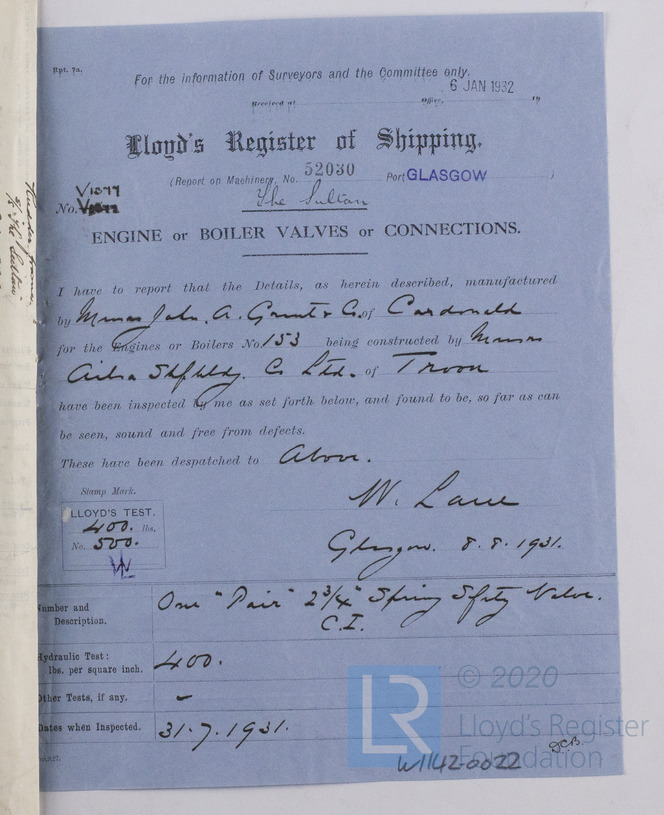 Rpt. 7a.
For the information of Surveyors and the Committee only.
6 JAN 1932
Received at Office, 19
Lloyd's Register of Shipping.
(Report on Machinery, No. 52030 Port GLASGOW )
V1577
No.
The Sultan
ENGINE or BOILER VALVES or CONNECTIONS.
I have to report that the Details, as herein described, manufactured
by Messrs John. A. Grant & Co. of Cardonald
for the Engines or Boilers No. 153 being constructed by Messrs
Ailsa Shpbldg. Co Ltd. of Troon
have been inspected by me as set forth below, and found to be, so far as can
be seen, sound and free from defects.
These have been despatched to Above.
Stamp Mark.
LLOYD'S TEST.
400. lbs.
No. 500.
WL
W. Laue
Glasgow. 8.8.1931.
Number and Description. One "Pair" 2 3/4" Spring Sfety Valve.
C.I.
Hydraulic Test:
lbs. per square inch. 400.
Other Tests, if any. –
Dates when Inspected. 31.7.1931.
LR
© 2020
Lloyd's Register
Foundation
W1142-0022